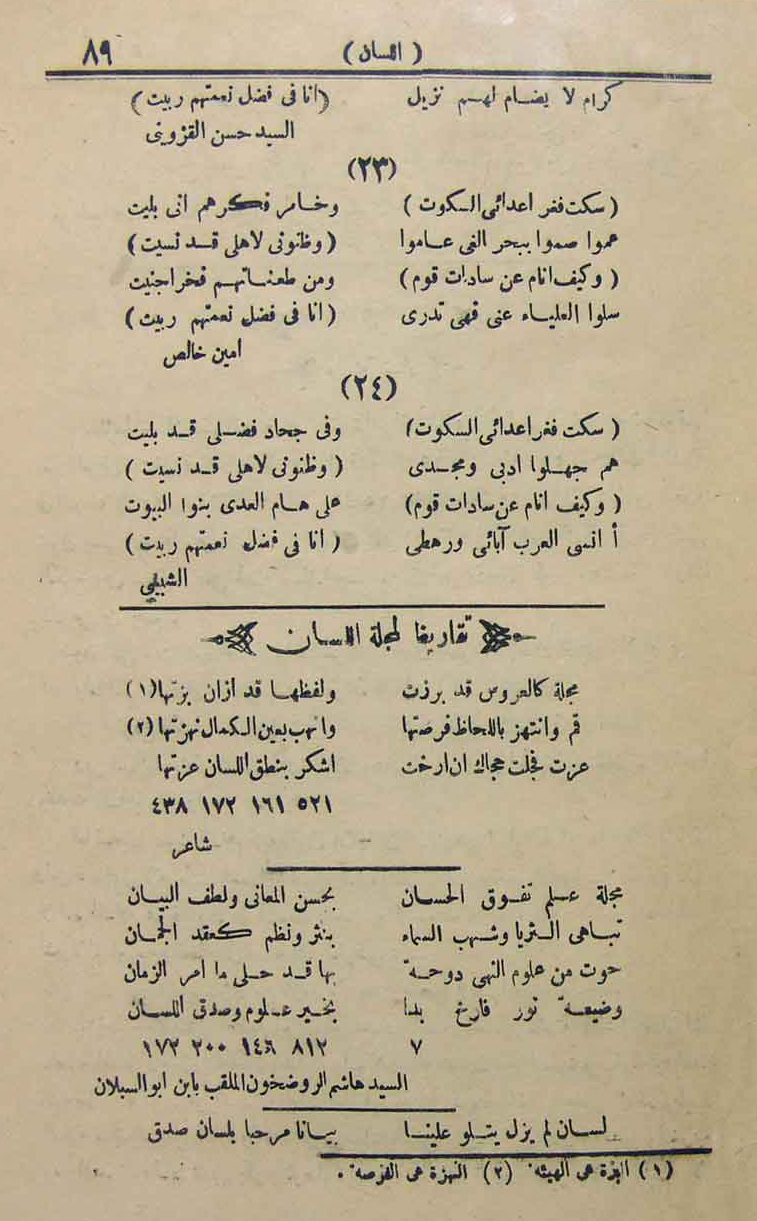 ( اللسان ) ٨٩
كرام لا يضام لهم نزيل (انا فى فضل نعمتهم ربيت)
السيد حسن القزوينى
(٢٣)
( سكت فغر اعدائى السكوت ) وخامر فكرهم انى بليت
عموا صموا ببحر الغى عاموا ( وظنونى لاهلى قد نسيت )
( وكيف انام عن سادات قوم ) ومن طعناتهم فخرا جنيت
سلوا العلياء عنى فهى تدرى ( انا فى فضل نعمتهم ربيت )
امين خالص
(٢٤)
( سكت فغر اعدائى السكوت ) وفى جحاد فضلى قد بليت
هم جهلوا ادبى ومجدى ( وظنونى لاهلى قد نسيت )
( وكيف انام عن سادات قوم ) على هام العدى بنوا البيوت
أ انسى العرب آبائى ورهطى ( انا فى فضل نعمتهم ربيت )
الشبيبي
تقاريظ لمجلة اللسان
مجلة كالعروس قد برزت ولفظها قد ازان بزتها (١)
قم وانتهز باللحاظ فرصتها وانهب بعين الكمال نهزتها (٢)
عزت فجلت حجاك ان ارخت اشكر بنطق اللسان عزتها
٥٢١ ١٦١ ١٧٢ ٤٣٨
شاعر
مجلة علم تفوق الحسان بحسن المعانى ولطف البيان
تباهى الثريا وشهب السماء بنثر ونظم كعقد الجمان
حوت من علوم النهى دوحة بها قد حلى ما امر الزمان
وضيعة نور فارغ بدا بخير علوم وصدق اللسان
٧ ٨١٢ ١٤٦ ٢٠٠ ١٧٢
السيد هاشم الروضخون الملقب بابن ابو السبلان
لسان لم يزل يتلو علينا بيانا مرحبا بلسان صدق
(١) البزة هى الهيئة . (٢) النهزة هى الفرصة .